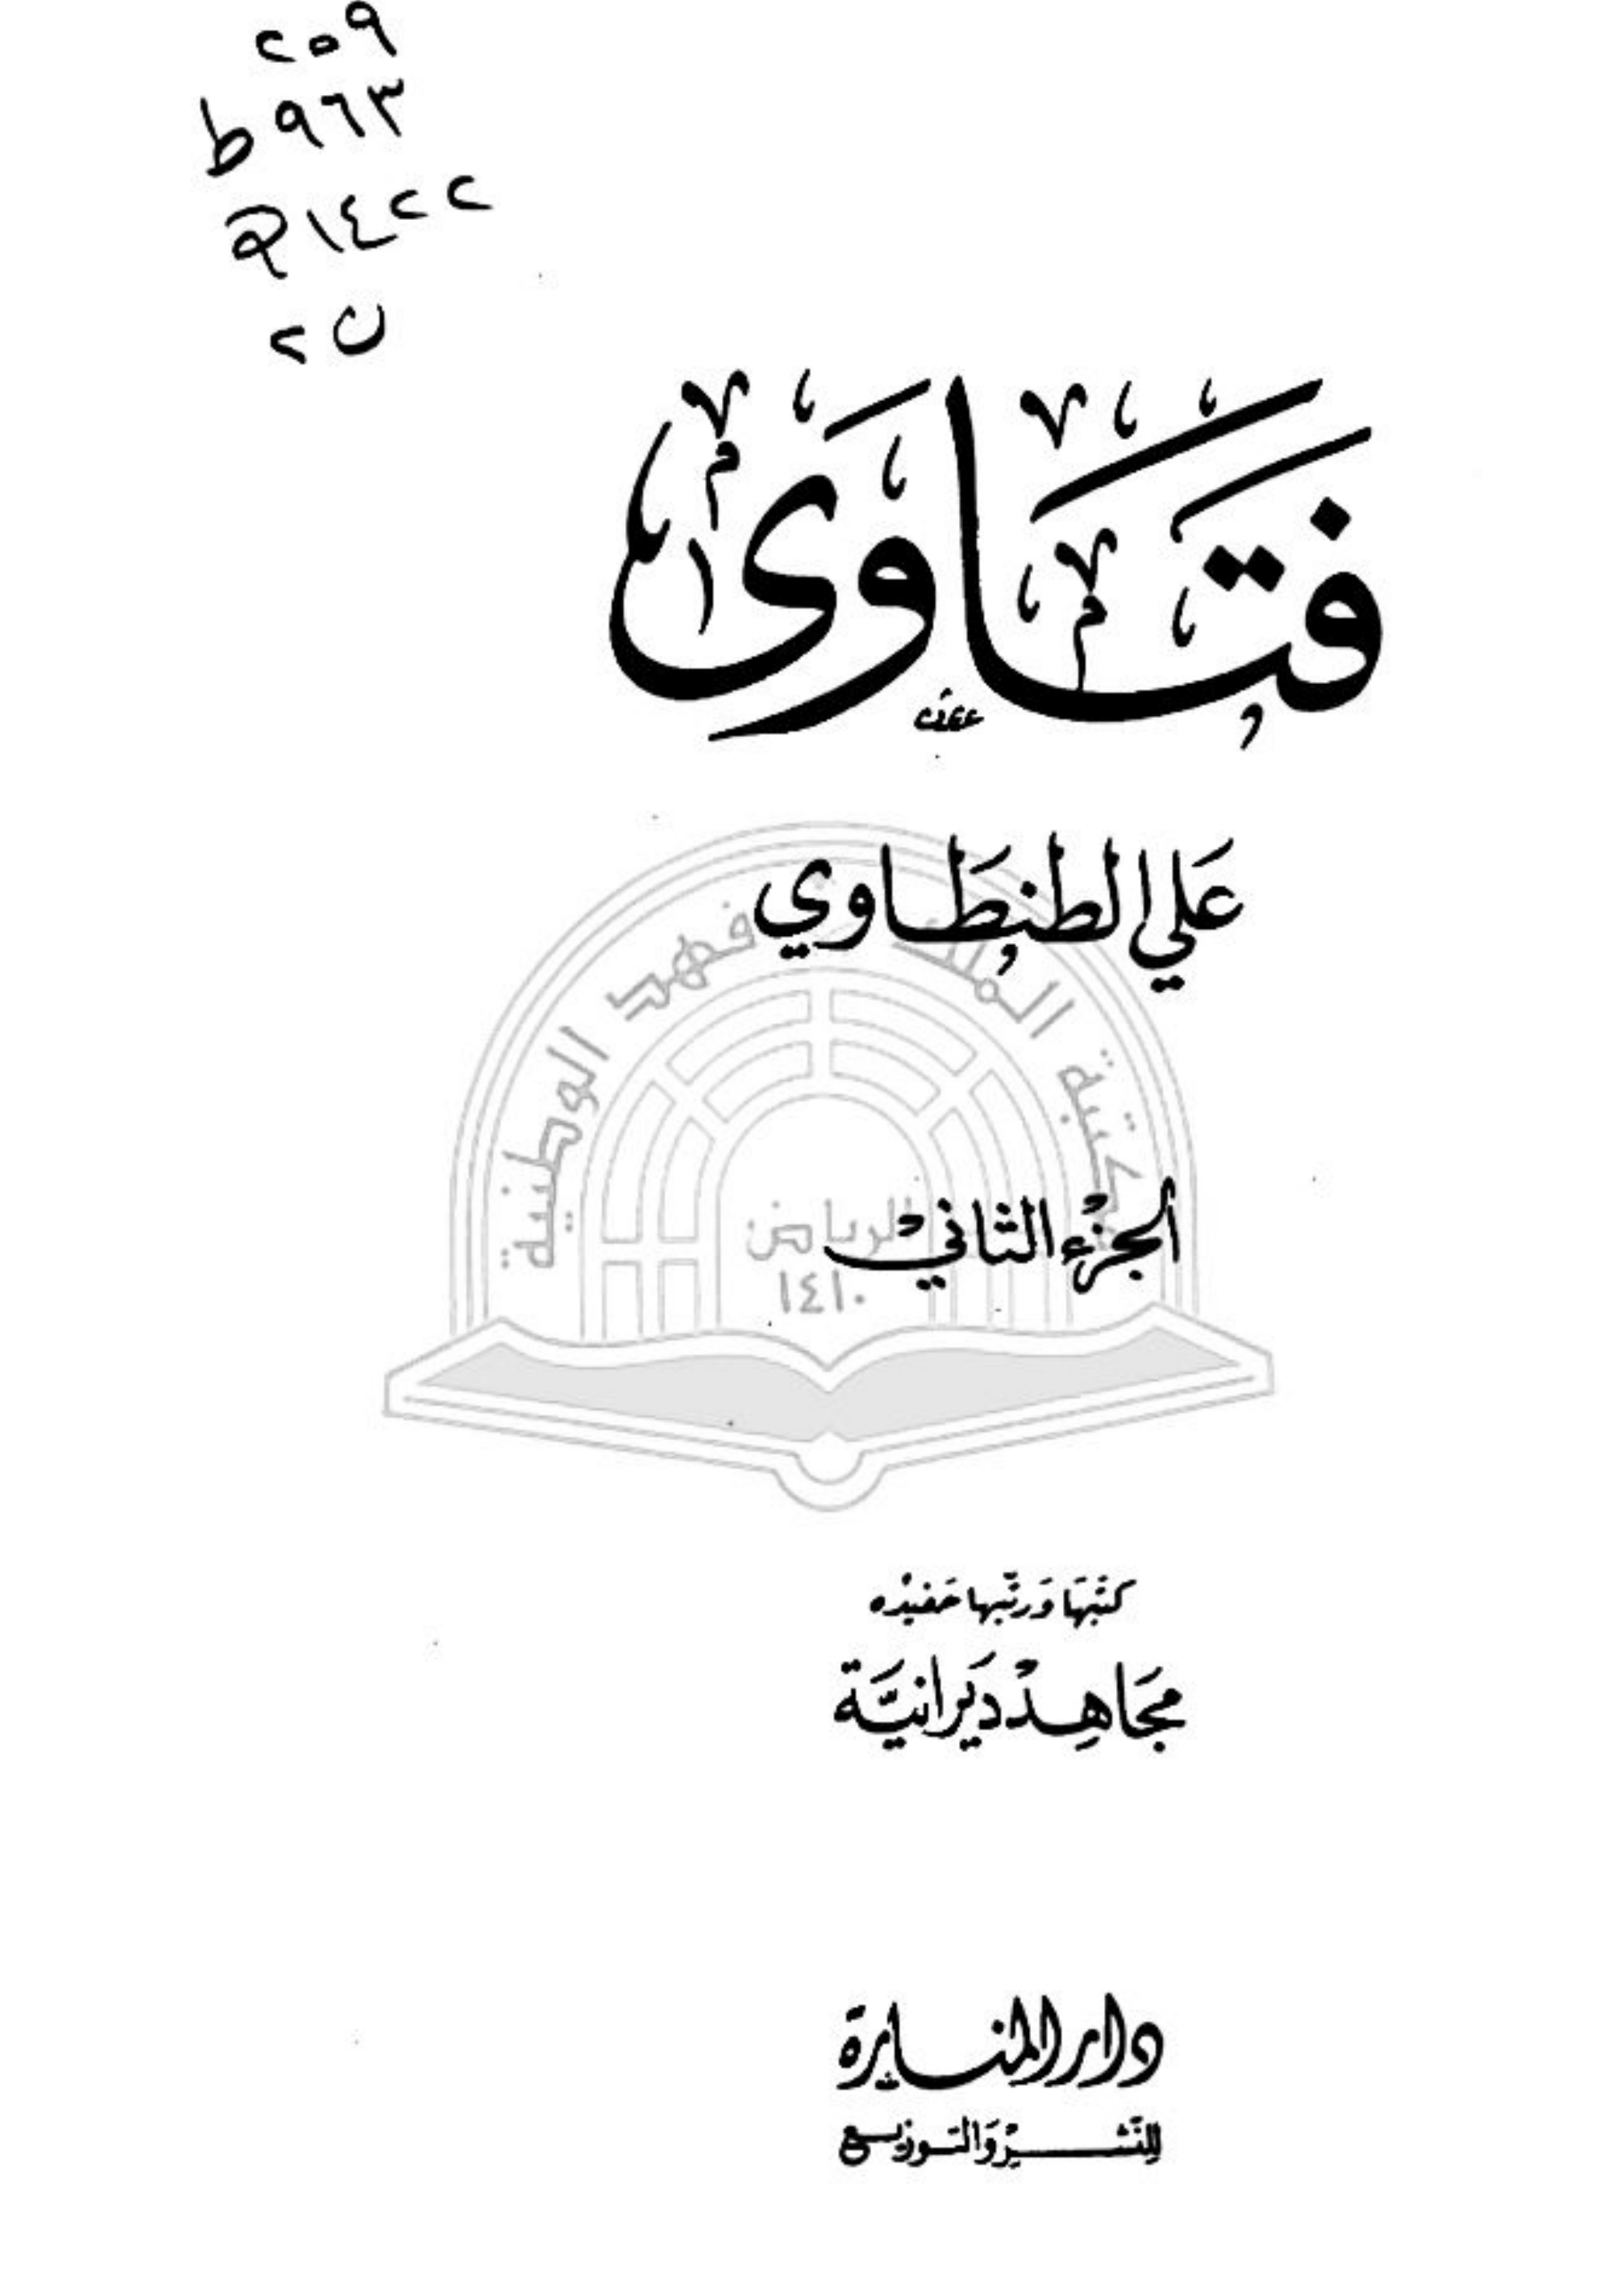 ٢٥٩
ط ٩٦٣
١٤٢٢
فَتَاوَى
عَلي الطنطَاوي
مكتبة الملك فهد الوطنية
الجزء الثاني
الرياض
١٤١٠
كتَبَهَا وَرتّبها حَفيدُه
مجَاهِد دَيرانيَّة
دار المنارة
للنّشر وَالتوزيع